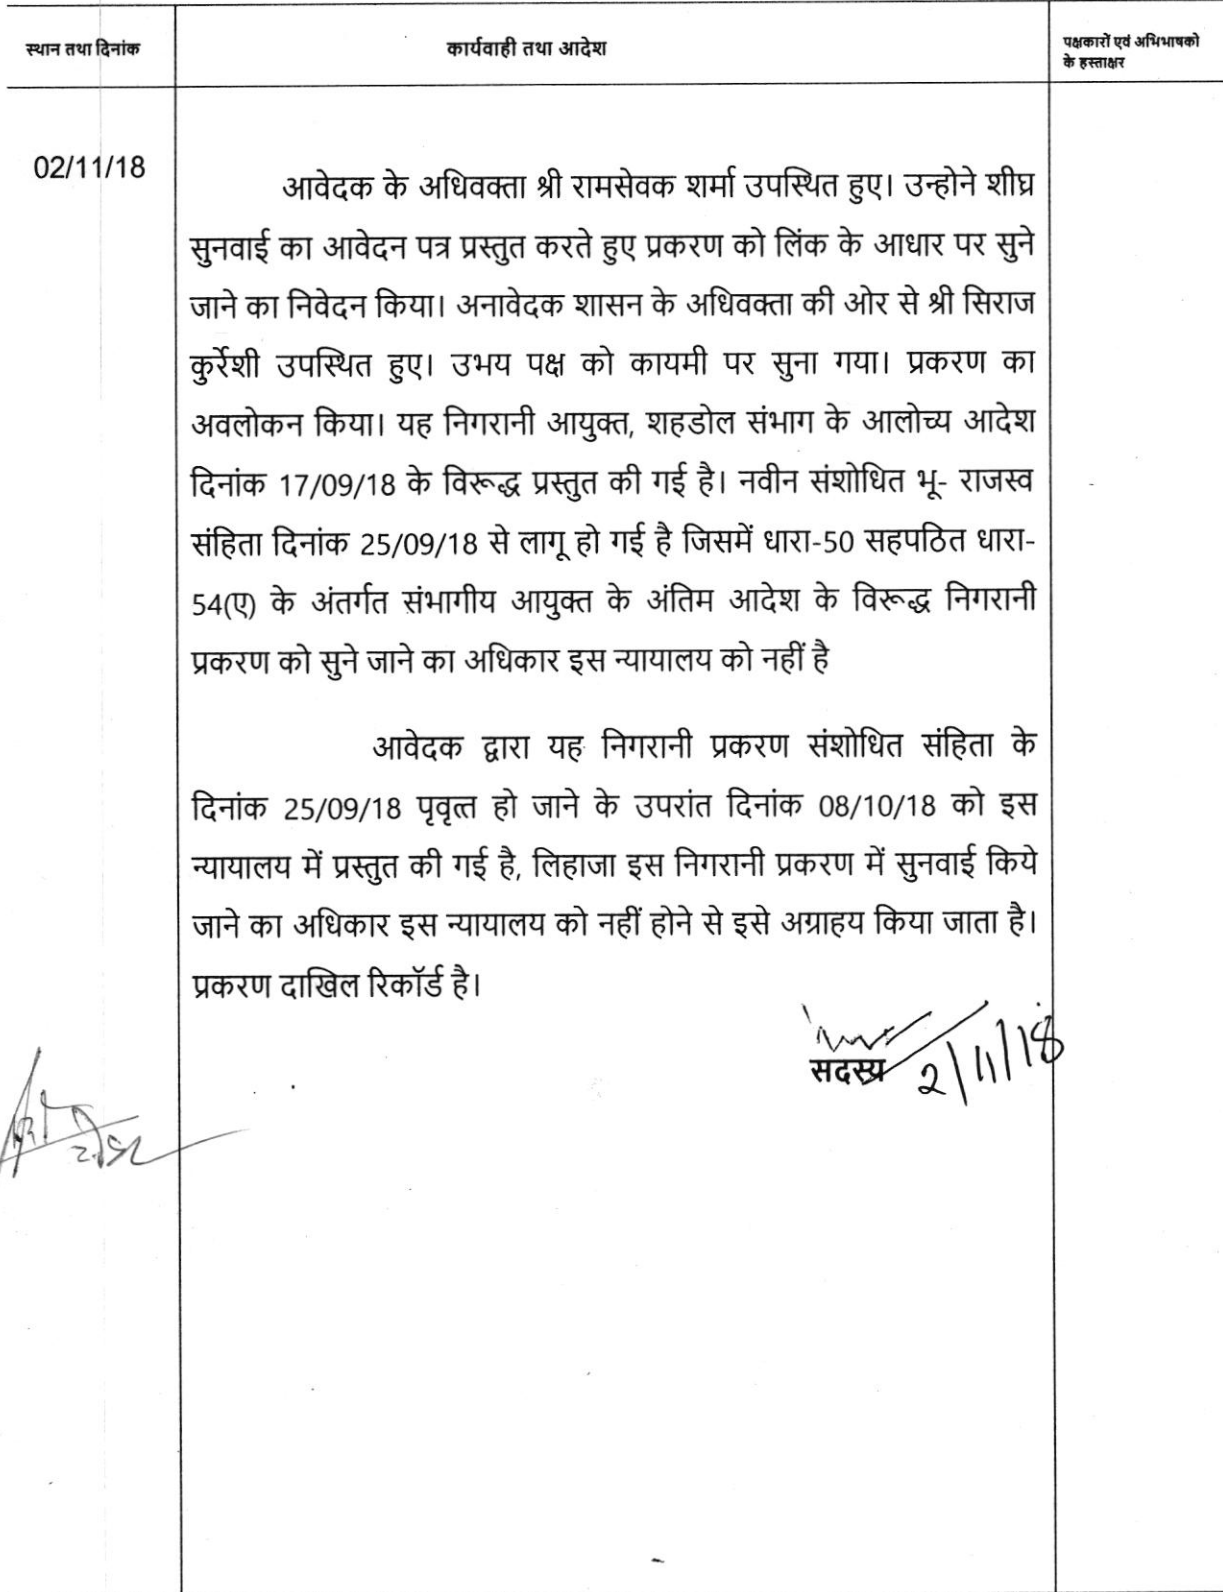 स्थान तथा दिनांक
कार्यवाही तथा आदेश
पक्षकारों एवं अभिभाषको
के हस्ताक्षर
02/11/18
आवेदक के अधिवक्ता श्री रामसेवक शर्मा उपस्थित हुए। उन्होने शीघ्र
सुनवाई का आवेदन पत्र प्रस्तुत करते हुए प्रकरण को लिंक के आधार पर सुने
जाने का निवेदन किया। अनावेदक शासन के अधिवक्ता की ओर से श्री सिराज
कुर्रेशी उपस्थित हुए। उभय पक्ष को कायमी पर सुना गया। प्रकरण का
अवलोकन किया। यह निगरानी आयुक्त, शहडोल संभाग के आलोच्य आदेश
दिनांक 17/09/18 के विरूद्ध प्रस्तुत की गई है। नवीन संशोधित भू- राजस्व
संहिता दिनांक 25/09/18 से लागू हो गई है जिसमें धारा-50 सहपठित धारा-
54(ए) के अंतर्गत संभागीय आयुक्त के अंतिम आदेश के विरूद्ध निगरानी
प्रकरण को सुने जाने का अधिकार इस न्यायालय को नहीं है
आवेदक द्वारा यह निगरानी प्रकरण संशोधित संहिता के
दिनांक 25/09/18 पृवृत्त हो जाने के उपरांत दिनांक 08/10/18 को इस
न्यायालय में प्रस्तुत की गई है, लिहाजा इस निगरानी प्रकरण में सुनवाई किये
जाने का अधिकार इस न्यायालय को नहीं होने से इसे अग्राहय किया जाता है।
प्रकरण दाखिल रिकॉर्ड है।
सदस्य 2/11/18